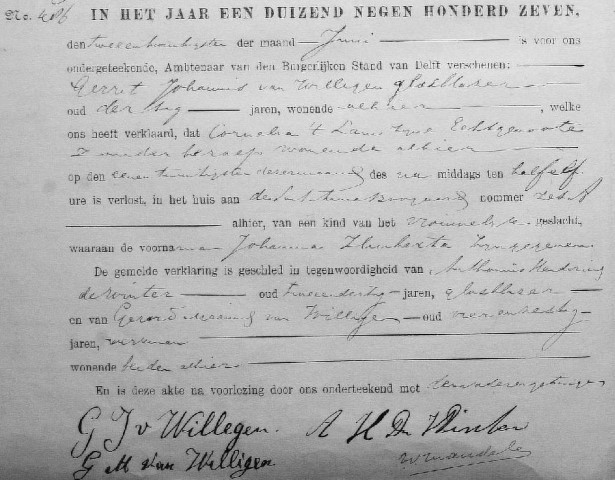 No. 486 IN HET JAAR EEN DUIZEND NEGEN HONDERD ZEVEN,
den tweeentwintigsten der maand Juni is voor ons
ondergeteekende, Ambtenaar van den Burgerlijken Stand van Delft verschenen:
Gerret Johannis van Willigen glasblazer
oud dertig jaren, wonende alhier, welke
ons heeft verklaard, dat Cornelia 't Lam zyne Echtgenoote
zonder beroep wonende alhier
op den eenentwintigsten dezer maand des na middags ten half elf
ure is verlost, in het huis aan nommer zes A
alhier, van een kind van het vrouwelyk geslacht,
waaraan de voorna men Johanna
De gemelde verklaring is geschied in tegenwoordigheid van Anthonie Hendrik
de Winter oud jaren, glasblazer
en van Gerard van Willigen oud vierenzestig
jaren, werkman
wonende beiden alhier
En is deze akte na voorlezing door ons onderteekend met
G J v Willegen. A H De Winter
G M van Willigen.